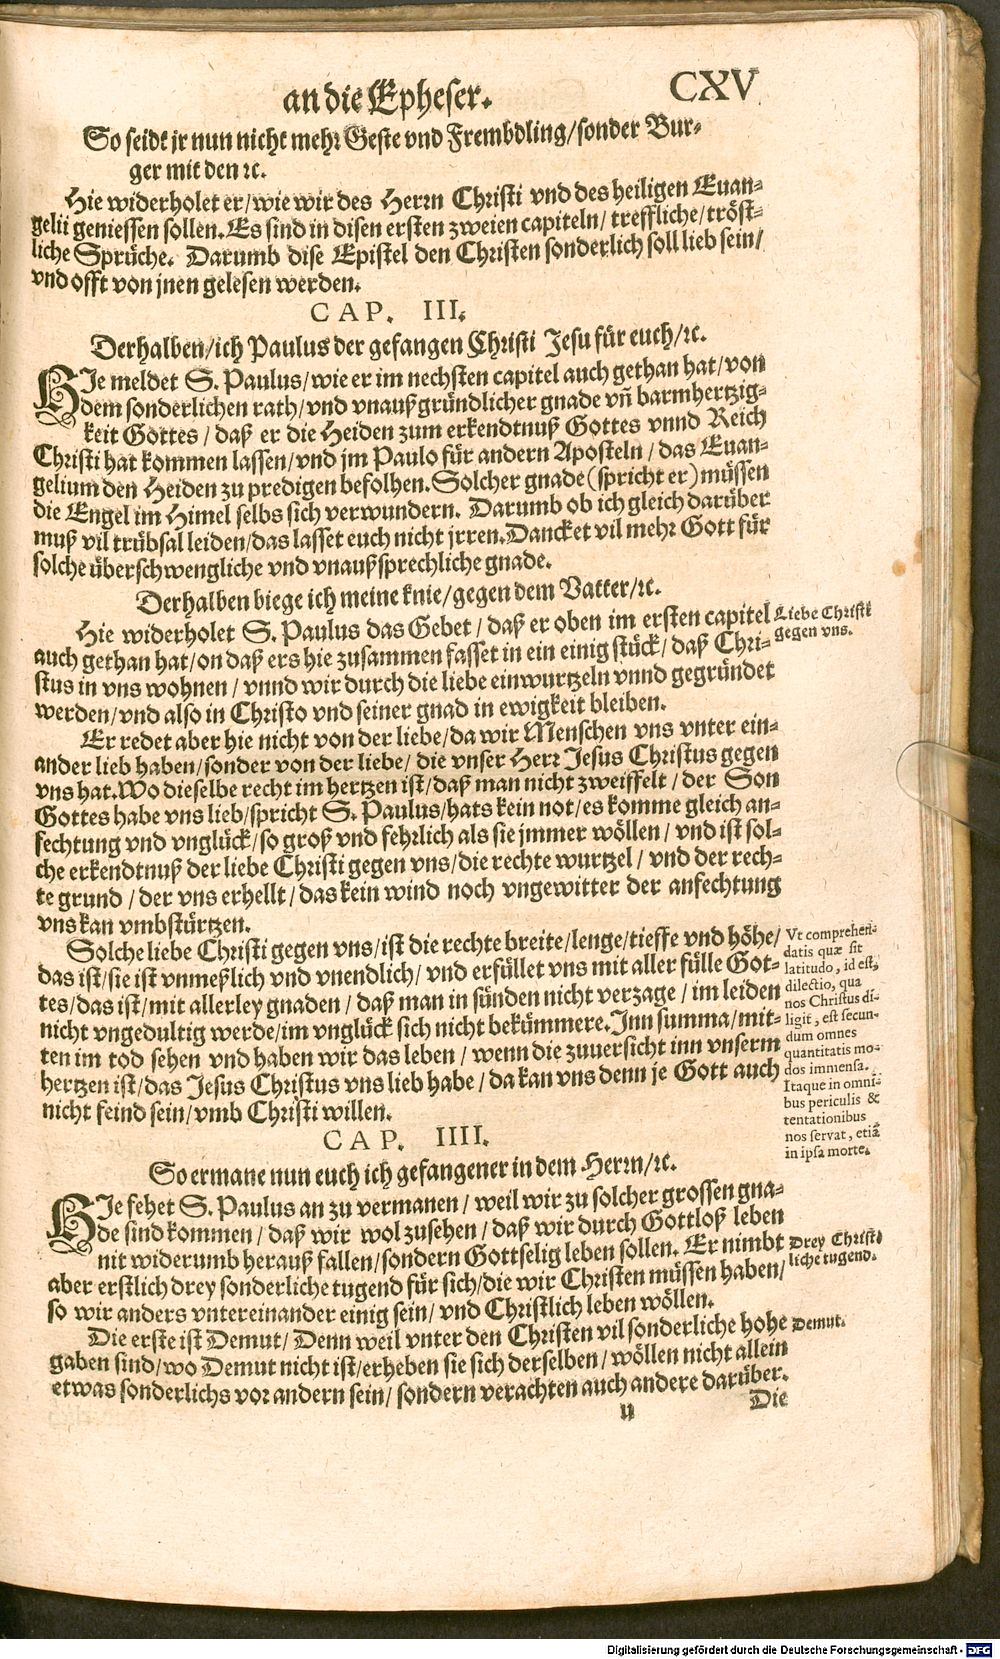 an die Epheser.
CXV
So seidt jr nun nicht mehr Geste vnd Frembdling/sonder Bur-
ger mit den ꝛc.
Hie widerholet er/wie wir des Herrn Christi vnd des heiligen Euan-
gelii geniessen sollen. Es sind in disen ersten zweien capiteln/ treffliche/tröst-
liche Sprüche. Darumb dise Epistel den Christen sonderlich soll lieb sein/
vnd offt von jnen gelesen werden.
CAP. III.
Derhalben/ich Paulus der gefangen Christi Jesu für euch/ꝛc.
HJe meldet S. Paulus/wie er im nechsten capitel auch gethan hat/von
dem sonderlichen rath/vnd vnaußgründlicher gnade vñ barmhertzig-
keit Gottes/ daß er die Heiden zum erkendtnuß Gottes vnnd Reich
Christi hat kommen lassen/vnd jm Paulo für andern Aposteln/ das Euan-
gelium den Heiden zu predigen befolhen. Solcher gnade (spricht er) müssen
die Engel im Himel selbs sich verwundern. Darumb ob ich gleich darüber
muß vil trübsal leiden/das lasset euch nicht jrren. Dancket vil mehr Gott für
solche überschwengliche vnd vnaußsprechliche gnade.
Derhalben biege ich meine knie/gegen dem Vatter/ꝛc.
Hie widerholet S. Paulus das Gebet/ daß er oben im ersten capitel
auch gethan hat/on daß ers hie zusammen fasset in ein einig stück/ daß Chri-
stus in vns wohnen/ vnnd wir durch die liebe einwurtzeln vnnd gegründet
werden/vnd also in Christo vnd seiner gnad in ewigkeit bleiben.
Liebe Christi
gegen vns.
Er redet aber hie nicht von der liebe/da wir Menschen vns vnter ein-
ander lieb haben/sonder von der liebe/ die vnser Herr Jesus Christus gegen
vns hat. Wo dieselbe recht im hertzen ist/daß man nicht zweiffelt/ der Son
Gottes habe vns lieb/spricht S. Paulus/hats kein not/es komme gleich an-
fechtung vnd vnglück/so groß vnd fehrlich als sie jmmer wöllen/ vnd ist sol-
che erkendtnuß der liebe Christi gegen vns/die rechte wurtzel/ vnd der rech-
te grund/ der vns erhellt/das kein wind noch vngewitter der anfechtung
vns kan vmbstürtzen.
Solche liebe Christi gegen vns/ist die rechte breite/lenge/tieffe vnd höhe/
das ist/sie ist vnmeßlich vnd vnendlich/ vnd erfüllet vns mit aller fülle Got-
tes/das ist/mit allerley gnaden/ daß man in sünden nicht verzage/ im leiden
nicht vngedultig werde/im vnglück sich nicht bekümmere. Jnn summa/mit-
ten im tod sehen vnd haben wir das leben/ wenn die zuuersicht inn vnserm
hertzen ist/das Jesus Christus vns lieb habe/ da kan vns denn je Gott auch
nicht feind sein/vmb Christi willen.
Vt comprehen-
datis quæ sit
latitudo, id est,
dilectio, qua
nos Christus di-
ligit, est secun-
dum omnes
quantitatis mo-
dos immensa.
Itaque in omni-
bus periculis &
tentationibus
nos servat, etiã
in ipsa morte.
CAP. IIII.
So ermane nun euch ich gefangener in dem Herrn/ꝛc.
HJe fehet S. Paulus an zu vermanen/ weil wir zu solcher grossen gna-
de sind kommen/ daß wir wol zusehen/ daß wir durch Gottloß leben
nit widerumb herauß fallen/sondern Gottselig leben sollen. Er nimbt
aber erstlich drey sonderliche tugend für sich/die wir Christen müssen haben/
so wir anders vntereinander einig sein/ vnd Christlich leben wöllen.
Drey Christ-
liche tugend.
Die erste ist Demut/ Denn weil vnter den Christen vil sonderliche hohe
gaben sind/wo Demut nicht ist/erheben sie sich derselben/ wöllen nicht allein
etwas sonderlichs vor andern sein/ sondern verachten auch andere darüber.
Demut.
u
Die
Digitalisierung gefördert durch die Deutsche Forschungsgemeinschaft - DFG